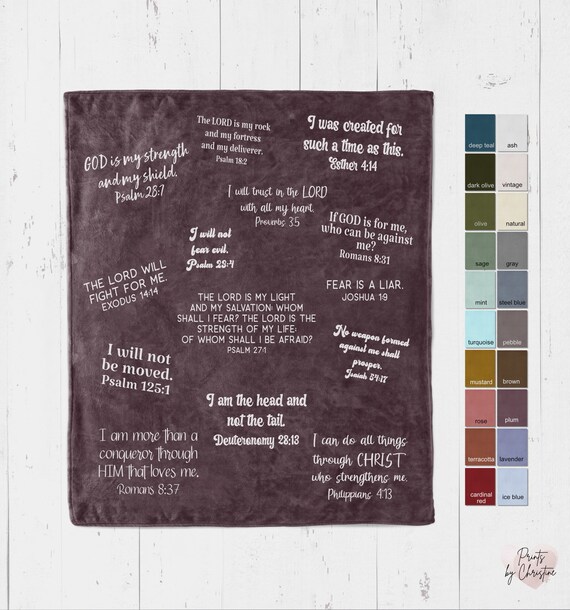 The LORD is my rock
and my fortress
and my deliverer.
Psalm 18:2
I was created for
such a time as this.
Esther 4:14
GOD is my strength
and my shield.
Psalm 28:7
I will trust in the LORD
with all my heart.
Proverbs 3:5
If GOD is for me,
who can be against
me?
Romans 8:31
I will not
fear evil.
Psalm 23:4
THE LORD WILL
FIGHT FOR ME.
EXODUS 14:14
FEAR IS A LIAR.
JOSHUA 1:9
THE LORD IS MY LIGHT
AND MY SALVATION; WHOM
SHALL I FEAR? THE LORD IS THE
STRENGTH OF MY LIFE;
OF WHOM SHALL I BE AFRAID?
PSALM 27:1
No weapon formed
against me shall
prosper.
Isaiah 54:17
I will not
be moved.
Psalm 125:1
I am the head and
not the tail.
Deuteronomy 28:13
I am more than a
conqueror through
HIM that loves me.
Romans 8:37
I can do all things
through CHRIST
who strengthens me.
Philippians 4:13
deep teal
ash
dark olive
vintage
olive
natural
sage
gray
mint
steel blue
turquoise
pebble
mustard
brown
rose
plum
terracotta
lavender
cardinal
red
ice blue
Prints
by Christine